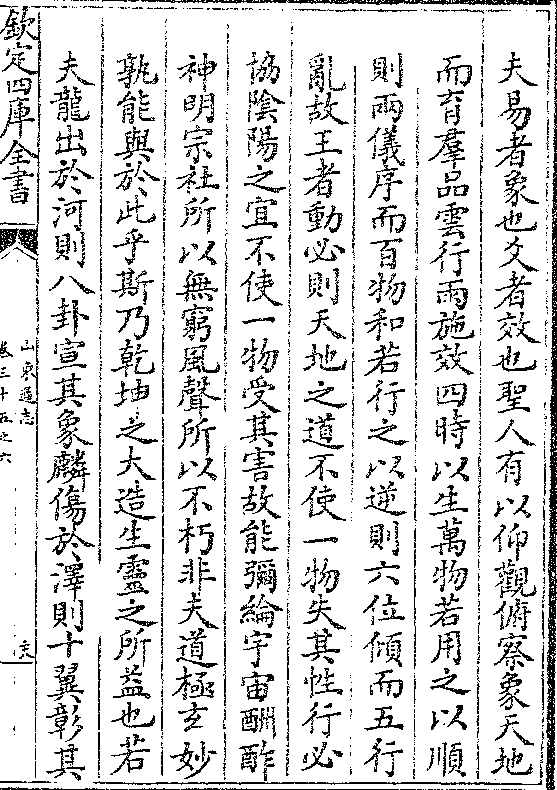 夫易者象也爻者效也聖人有以仰觀俯察象天地
而育羣品雲行雨施效四時以生萬物若用之以順
則兩儀序而百物和若行之以逆則六位傾而五行
亂故王者動必則天地之道不使一物失其性行必
協陰陽之宜不使一物受其害故能彌綸宇宙酬酢
神明宗社所以無窮風聲所以不朽非夫道極玄妙
孰能與於此乎斯乃乾坤之大造生靈之所益也若
夫龍出於河則八卦宣其象麟傷於澤則十翼彰其
欽定四庫全書
山東通志
卷三十五之六